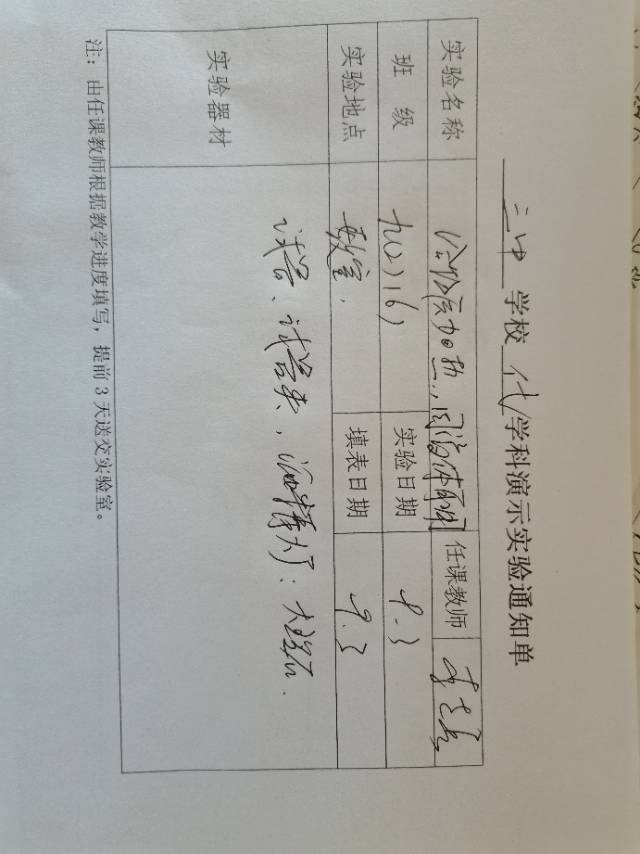 三中 学校 化 学科演示实验通知单
实验名称 给液体加热、固体 任课教师 李
班 级 九(2)(6) 实验日期 9.3
实验地点 教室. 填表日期 9.3
实验器材 试管、试管夹、酒精灯:
注：由任课教师根据教学进度填写，提前3天送交实验室。